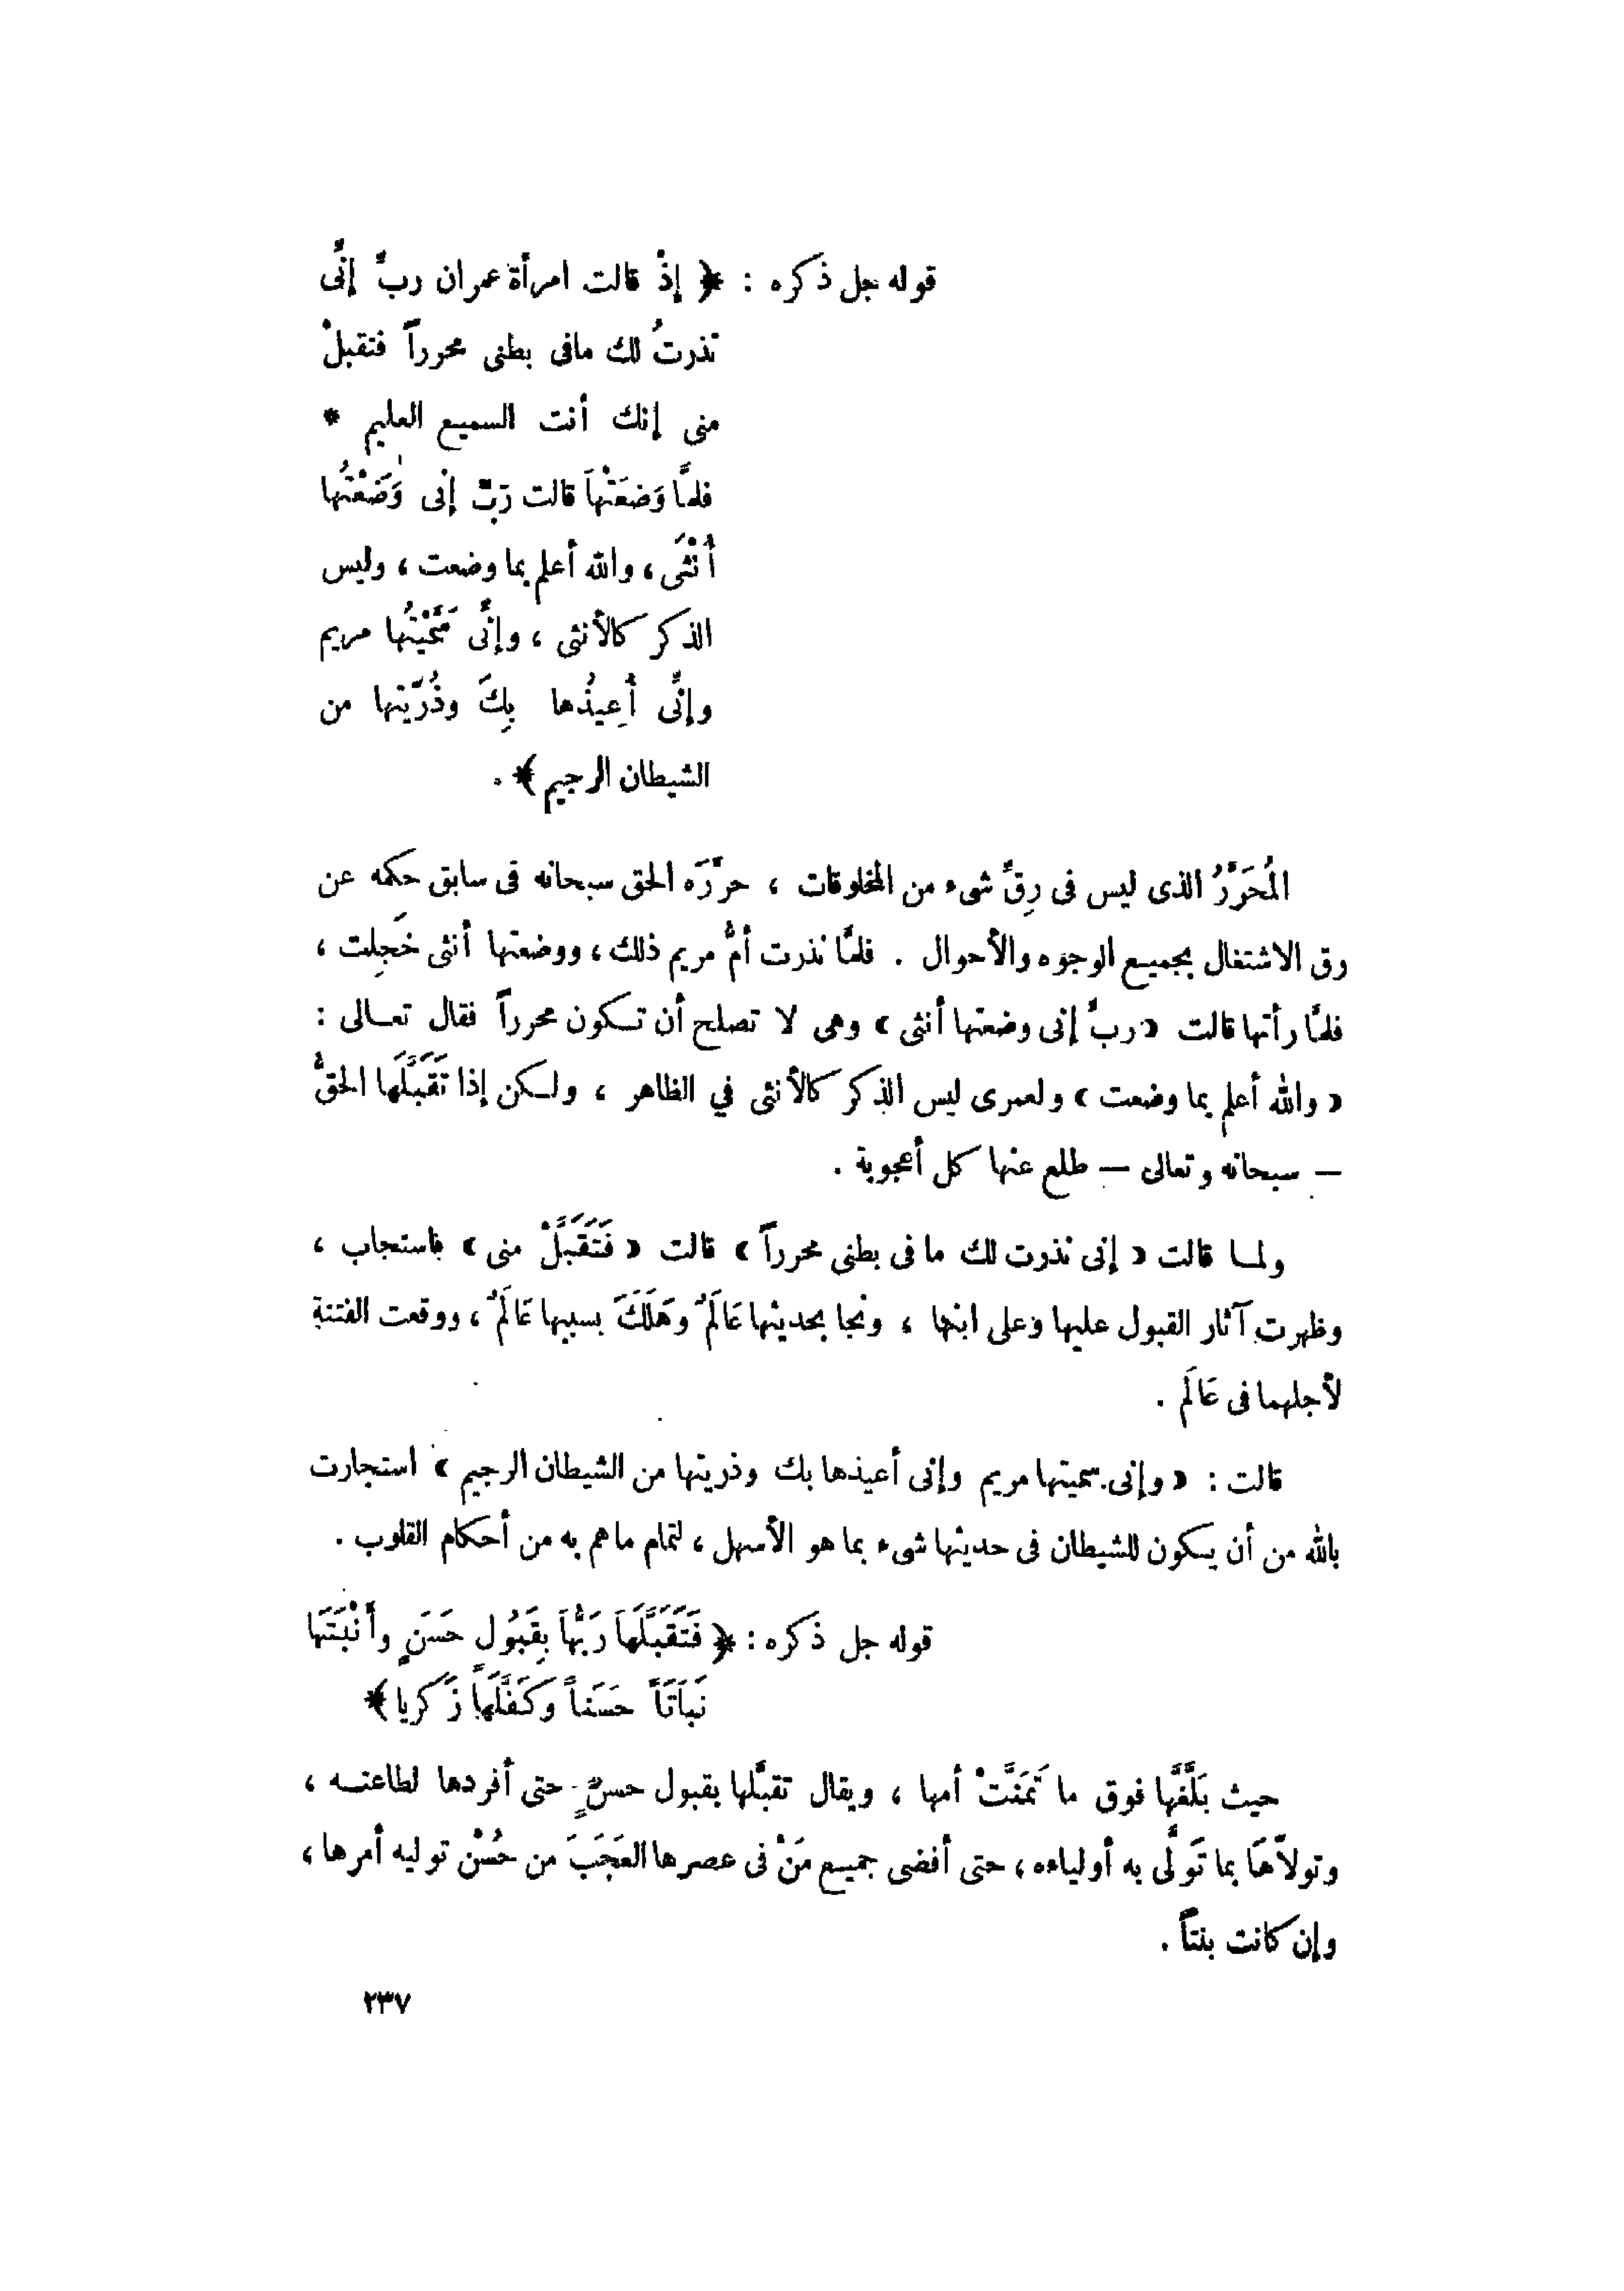 قوله جل ذكره : ﴿ إذْ قالت امرأة عمران ربِّ إنِّى
نذرتُ لك مافى بطنى محرراً فتقبلْ
منى إنك أنت السميع العليم *
فلمَّا وَضعَتْهاَ قالت رَبِّ إنْى وَضَعْتُها
أُنْثَى ، والله أعلم بما وضعت ، وليس
الذكر كالأنثى ، وإنِّى سَمَّيْتُها مريم
وإنِّى أُعِيذُها بِكَ وذُرِّيتها من
الشيطان الرجيم ﴾ .
المُحَرَّرُ الذى ليس فى رِقِّ شىء من المخلوقات ، حرَّرَه الحق سبحانه فى سابق حكمه عن
رق الاشتغال بجميع الوجوه والأحوال . فلمَّا نذرت أمُّ مريم ذلك ، ووضعتها أنثى خَجِلت ،
فلمَّا رأتها قالت « ربِّ إنى وضعتها أنثى » وهى لا تصلح أن تكون محرراً فقال تعالى :
« والله أعلم بما وضعت » ولعمرى ليس الذكر كالأنثى في الظاهر ، ولكن إذا تَقَبَّلَها الحقُّ
— سبحانه وتعالى — طلع عنها كل أعجوبة .
ولما قالت « إنى نذرت لك ما فى بطنى محرراً » قالت « فَتَقَبَّلْ منى » فاستجاب ،
وظهرت آثار القبول عليها وعلى ابنها ، ونجا بحديثها عَالَمٌ وهَلَكَ بسببها عَالَمٌ ، ووقعت الفتنة
لأجلهما فى عَالَم .
قالت : « وإنى سميتها مريم وإنى أعيذها بك وذريتها من الشيطان الرجيم » استجارت
بالله من أن يكون للشيطان فى حديثها شىء بما هو الأسهل ، لتمام ماهم به من أحكام القلوب .
قوله جل ذكره : ﴿ فَتَقَبَّلَها رَبُّهاَ بِقَبُولٍ حَسَنٍ وأَنْبَتَهَا
نَباَتَاً حَسَناً وَكَفَّلَهاَ زَكريا ﴾
حيث بَلَّغها فوق ما تَمَنَّتْ أمها ، ويقال تقبَّلها بقبول حسنٍ حتى أفردها لطاعته ،
وتولاَّهَا بما تَوَلَّى به أولياءه ، حتى أفضى جميع مَنْ فى عصرها العَجَبَ من حُسْن توليه أمرها ،
وإن كانت بنتاً .
٢٣٧